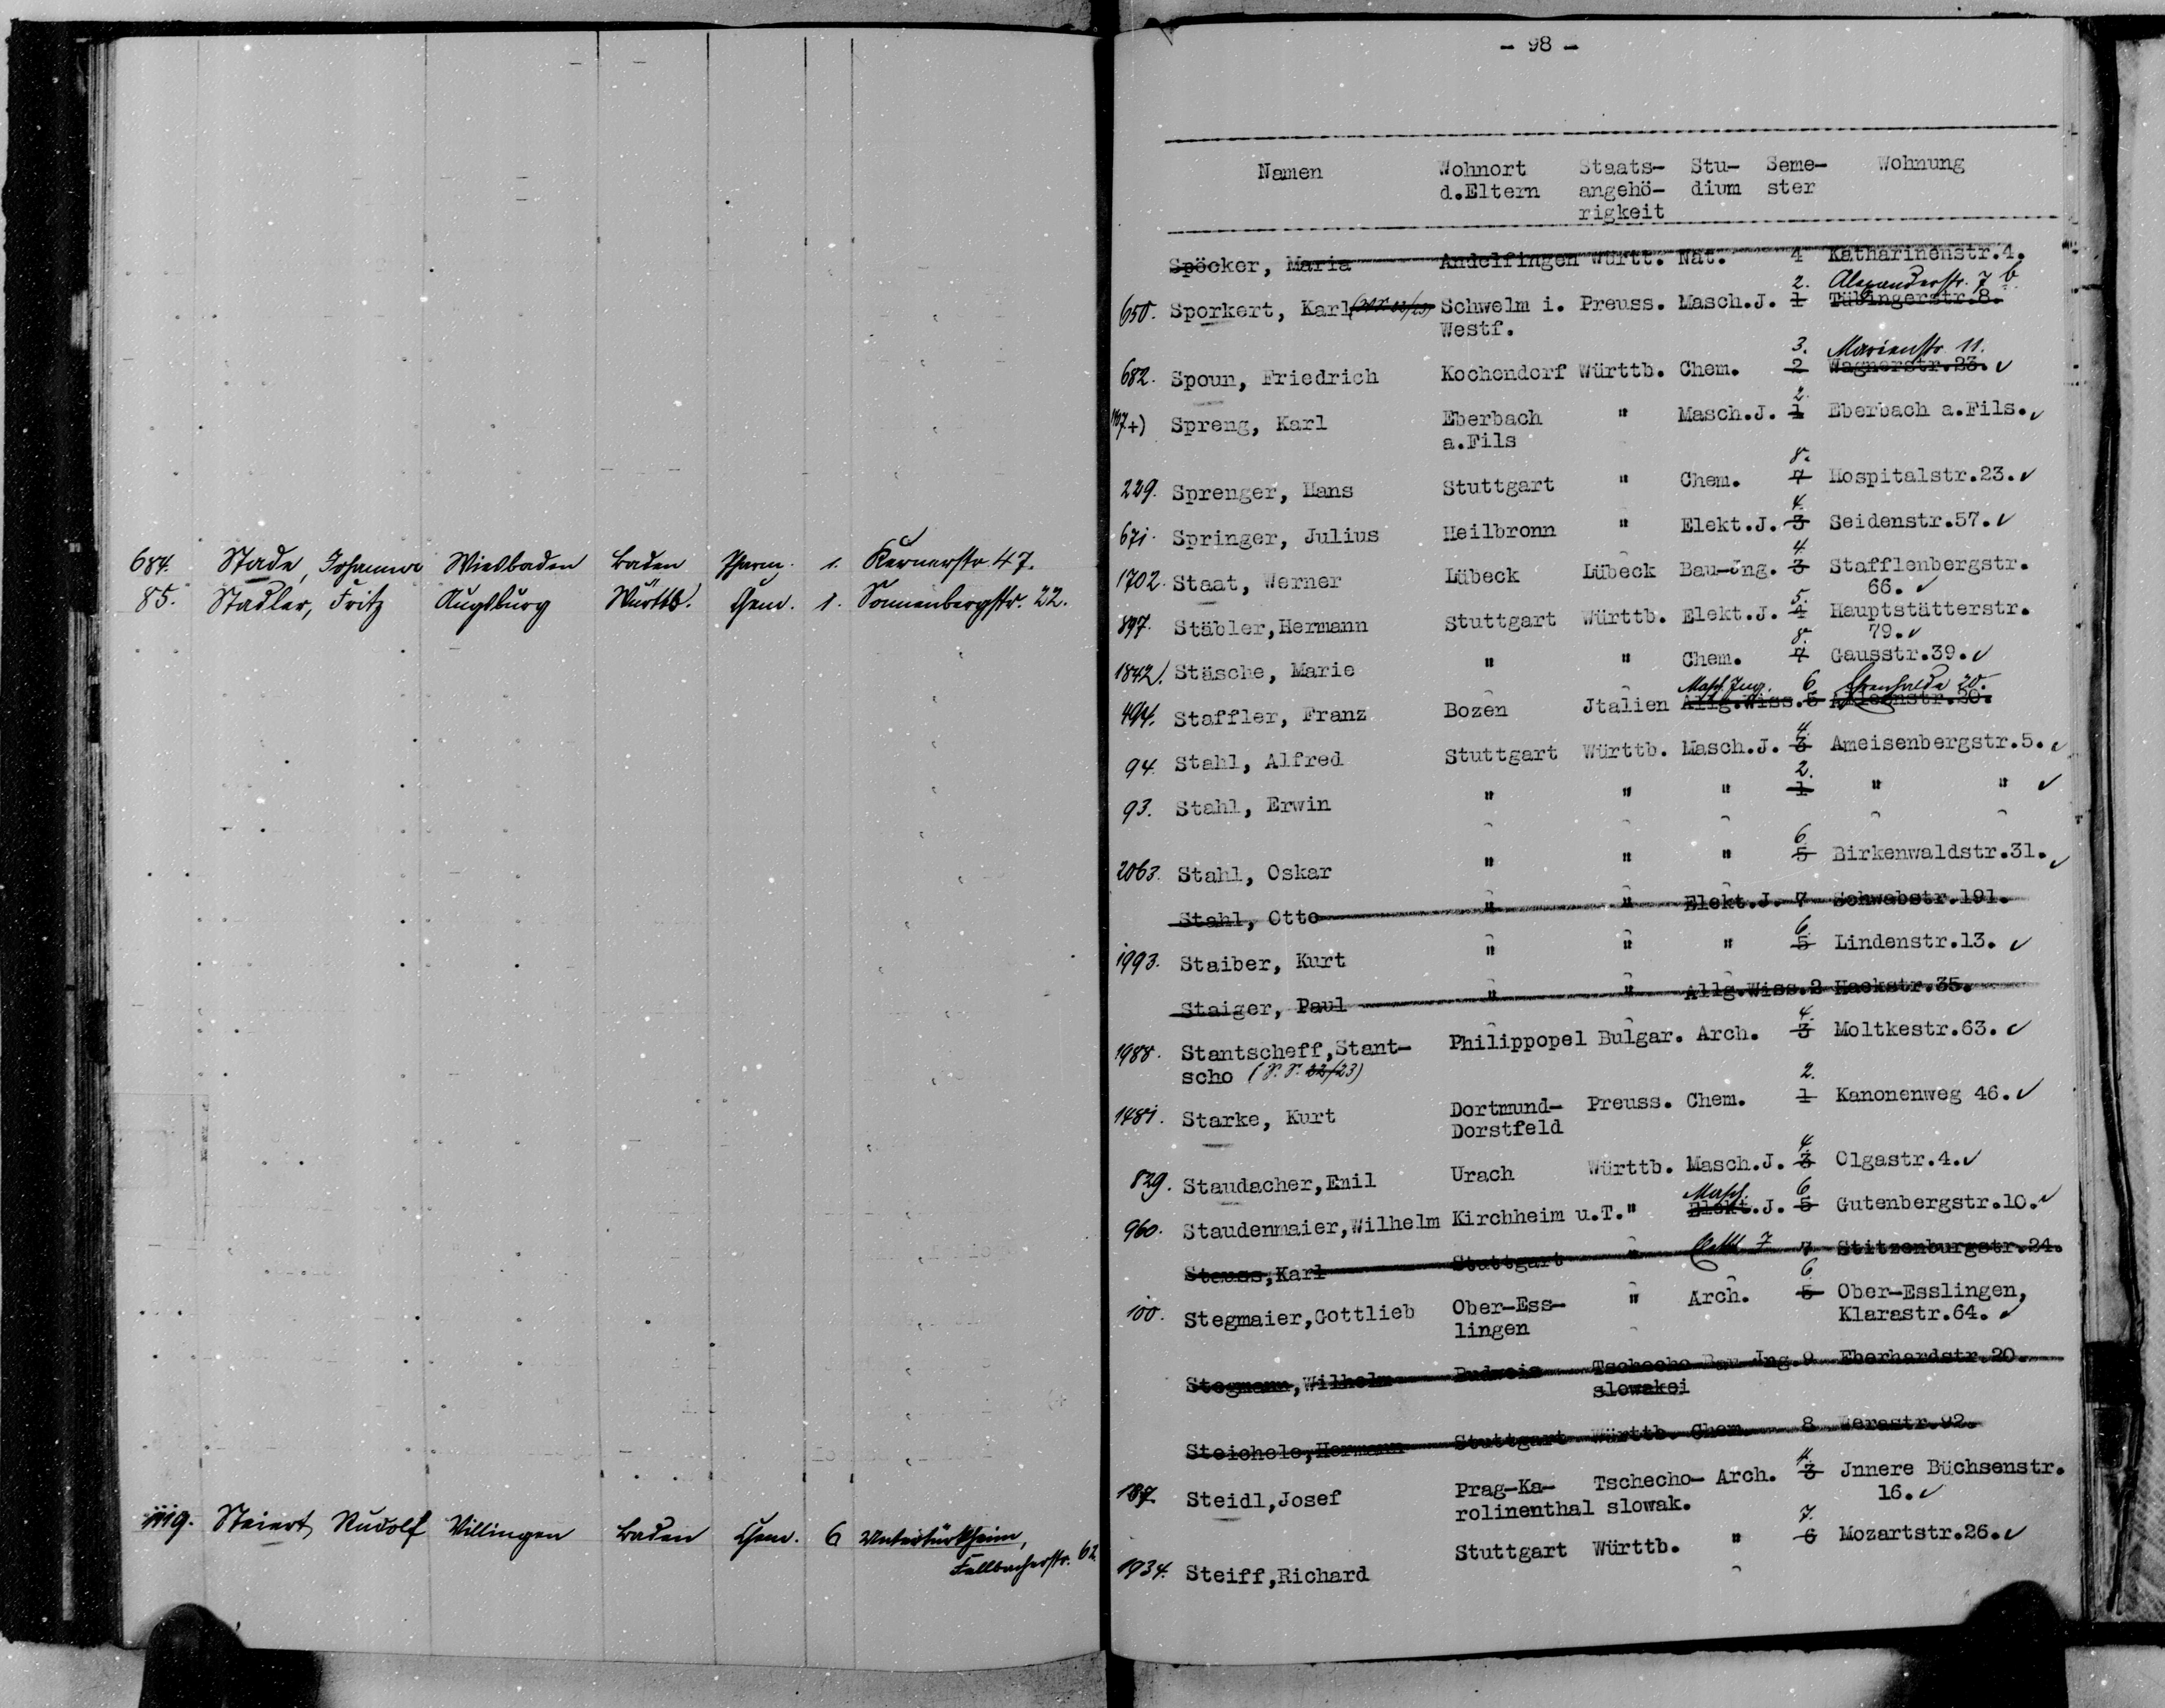 684. Stade, Johanna Wiesbaden Baden Pharm. 1. Kernerstr. 47.
85. Stadler, Fritz Augsburg Württb. Chem. 1. Sonnenbergstr. 22.
1119. Steiert Rudolf Villingen Baden Chem. 6 Untertürkheim,
Fellbacherstr. 62
- 98 -
Namen Wohnort Staats- Stu- Seme- Wohnung
d.Eltern angehö- dium ster
rigkeit
Spöcker, Maria Andelfingen Württ. Nat. 4 Katharinenstr.4.
2. Alexanderstr. 7 b
650. Sporkert, Karl Schwelm i. Preuss. Masch.J. 1 Tübingerstr.8.
Westf.
3. Marienstr. 11.
682. Spoun, Friedrich Kochendorf Württb. Chem. 2 Wagnerstr.23. ✓
2.
+) Spreng, Karl Eberbach " Masch.J. 1 Eberbach a.Fils. ✓
a.Fils
8.
229. Sprenger, Hans Stuttgart " Chem. 7 Hospitalstr.23. ✓
4.
671. Springer, Julius Heilbronn " Elekt.J. 3 Seidenstr.57. ✓
4
1702. Staat, Werner Lübeck Lübeck Bau-Jng. 3 Stafflenbergstr.
66. ✓
5.
897. Stäbler,Hermann Stuttgart Württb. Elekt.J. 4 Hauptstätterstr.
79. ✓
8.
1842. Stäsche, Marie " " Chem. 7 Gausstr.39. ✓
Masch. Ing. 6. Ehrenhalde 20.
494. Staffler, Franz Bozen Jtalien Allg.Wiss.5
4.
94. Stahl, Alfred Stuttgart Württb. Masch.J. 3 Ameisenbergstr.5. ✓
2.
93. Stahl, Erwin " " " 1 " " ✓
6
2063. Stahl, Oskar " " " 5 Birkenwaldstr.31. ✓
Stahl, Otto " " Elekt.J. 7 Schwabstr.191.
6.
1993. Staiber, Kurt " " " 5 Lindenstr.13. ✓
Staiger, Paul " " Allg.Wiss.2 Hackstr.35.
4.
1988. Stantscheff,Stant- Philippopel Bulgar. Arch. 3 Moltkestr.63. ✓
scho (S.S. 22/23)
2.
1481. Starke, Kurt Dortmund- Preuss. Chem. 1 Kanonenweg 46. ✓
Dorstfeld
4.
829. Staudacher,Emil Urach Württb. Masch.J. 3 Olgastr.4. ✓
Masch. 6
960. Staudenmaier,Wilhelm Kirchheim u.T." Elekt.J. 5 Gutenbergstr.10. ✓
Stauss,Karl Stuttgart " 7 7 Stitzenburgstr.24.
6.
100. Stegmaier,Gottlieb Ober-Ess- " Arch. 5 Ober-Esslingen,
lingen Klarastr.64. ✓
Stegmann,Wilhelm Budweis Tschecho Bau Jng.9 Eberhardstr.20.
slowakei
Steichele,Hermann Stuttgart Württb. Chem. 8 Werastr.92.
4.
187. Steidl,Josef Prag-Ka- Tschecho- Arch. 3 Jnnere Büchsenstr.
rolinenthal slowak. 16. ✓
7.
1934. Steiff,Richard Stuttgart Württb. " 6 Mozartstr.26. ✓